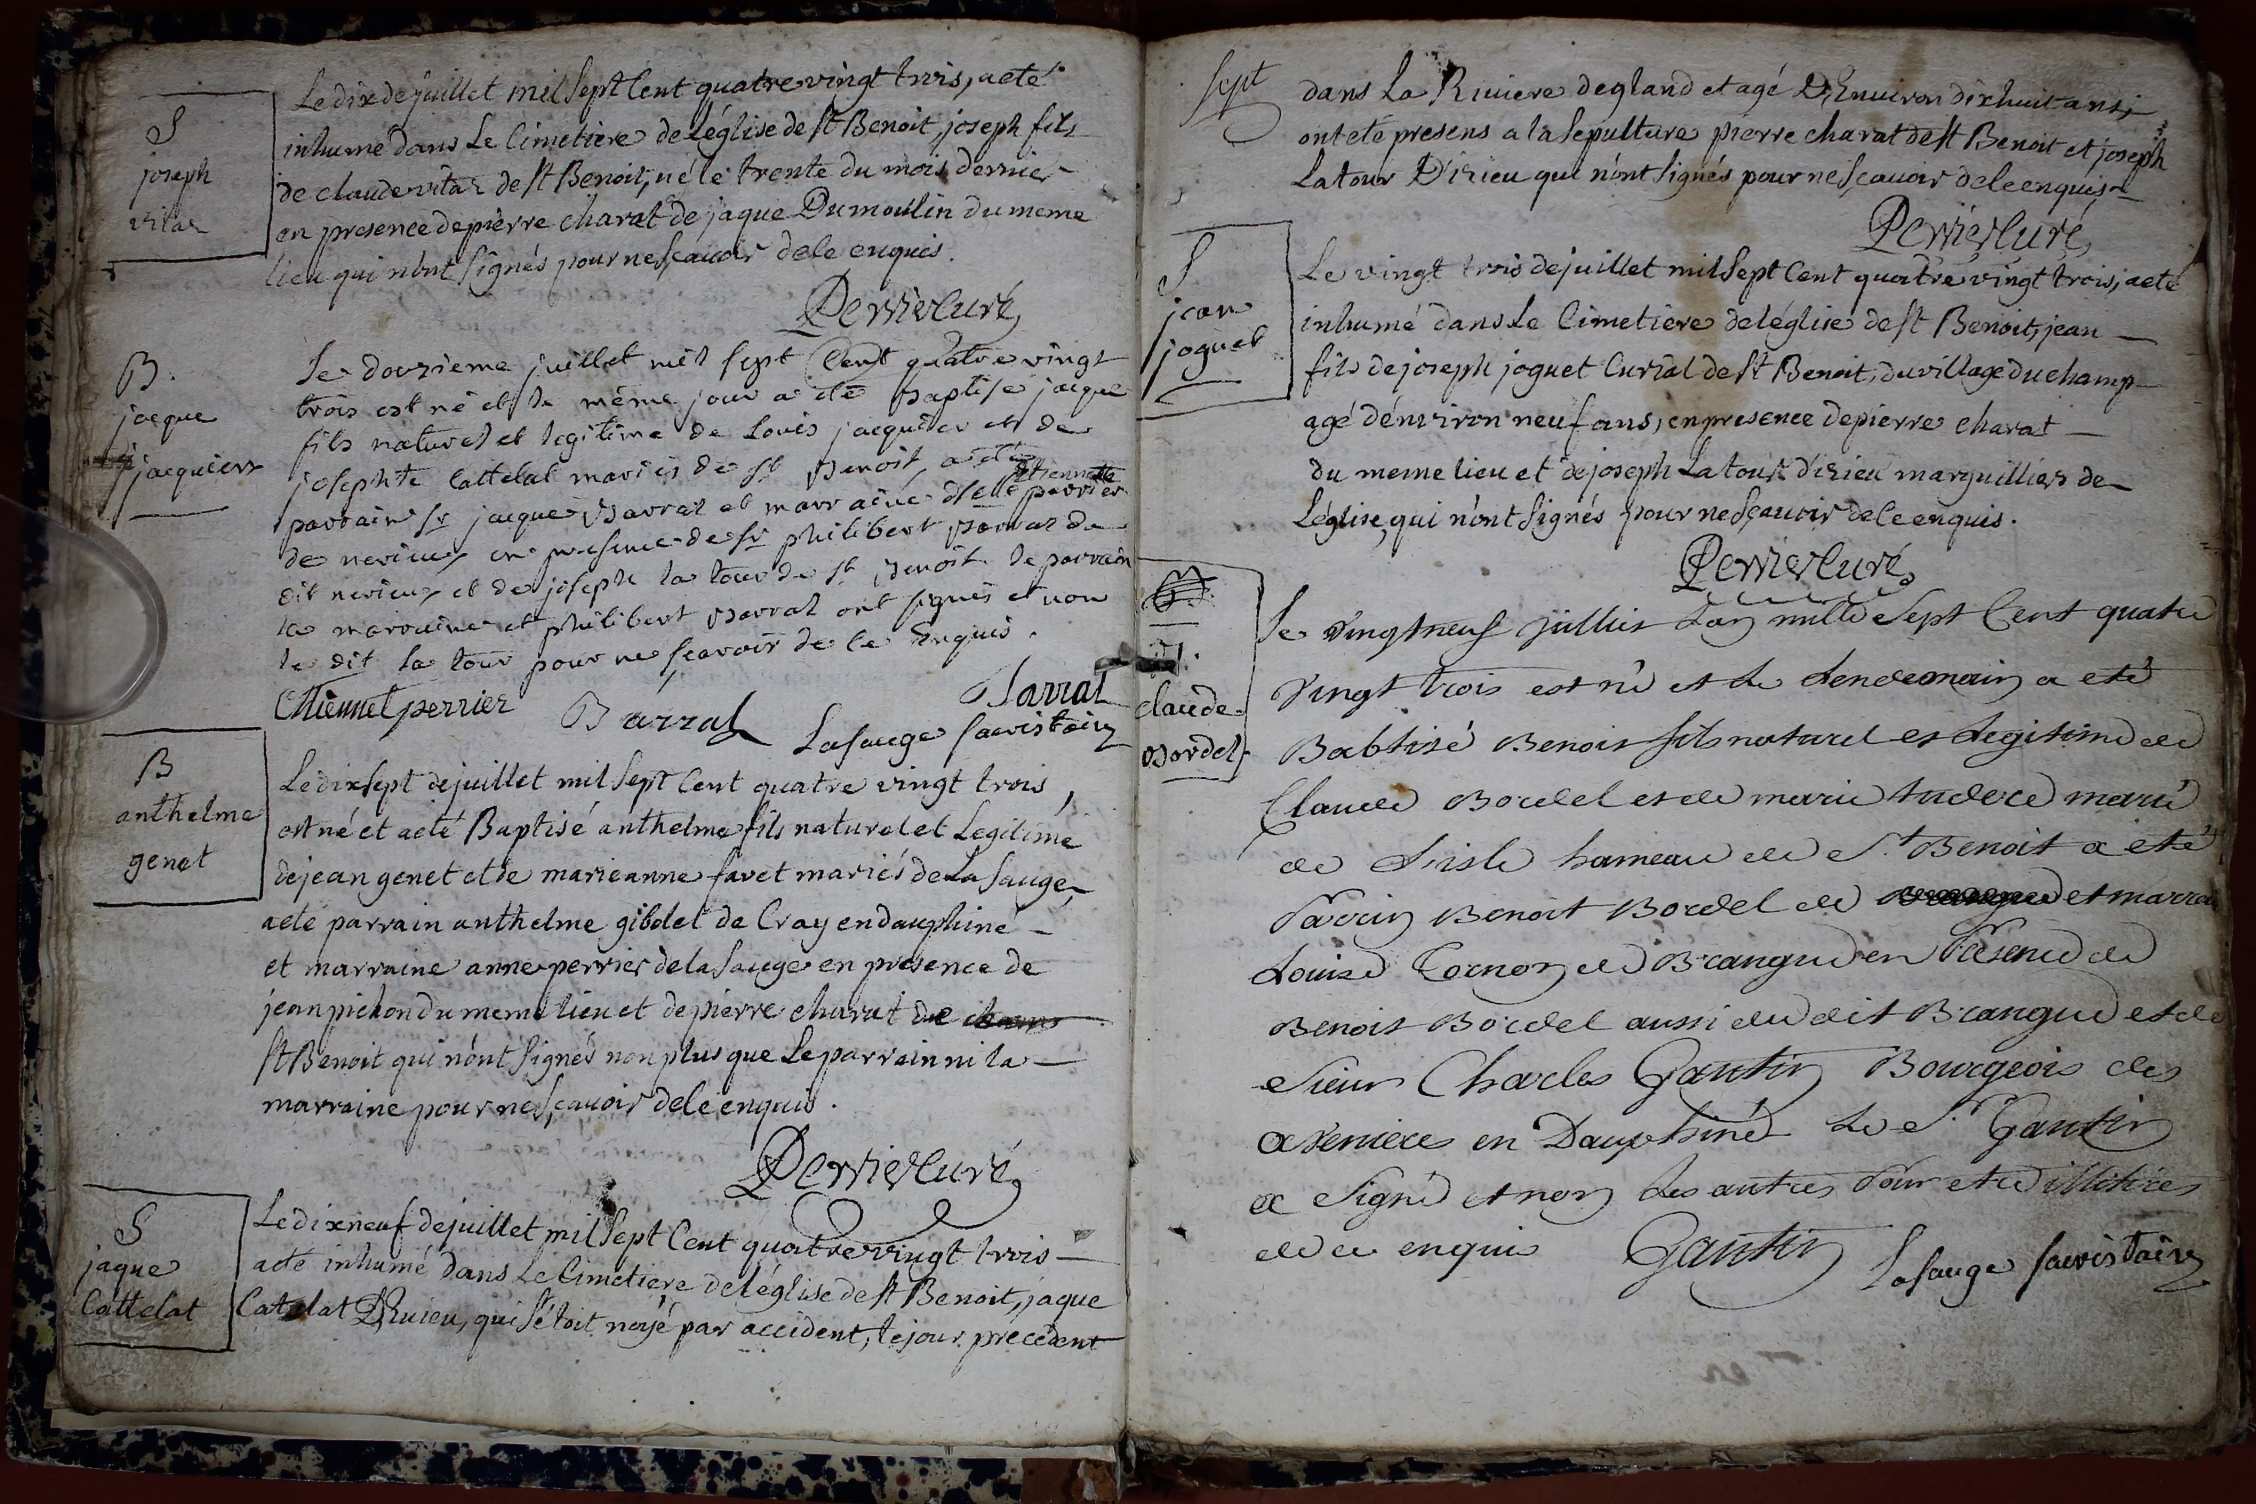 S
joseph
vitar
Le dix de juillet mil sept Cent quatre vingt trois, a eté
inhumé dans Le Cimetiere de Léglise de st Benoit, joseph fils
de claude vitar de st Benoit, né le trente du mois dernier
en presence de pierre charat de jaque Dumoulin du meme
lieu qui n'ont signés pour ne sçavoir de le enquis.
Perrier Curé
B.
jacque
jacquier
Le douzieme juillet mil sept Cent quatre vingt
trois est né et le même jour a été Baptisé jacque
fils naturel et legitime de Louis jacquier et de
josephte Cattelat mariés de st Benoit, a été
parrain sr jacque Barral et marraine dlle Etiennette perrier
de nerieu en presence de sr philibert Barral du
dit nerieu et de joseph la tour de st Benoit le parrain
la marraine et philibert Barral ont signés et non
le dit la tour pour ne sçavoir de le Enquis.
Etiennet perrier Barral Barral
Lasauge sacristain
B
anthelme
genet
Le dixsept de juillet mil sept Cent quatre vingt trois,
est né et a eté Baptisé anthelme fils naturel et Legitime
de jean genet et de marieanne favet mariés de La sauge,
a eté parrain anthelme gibolet de Cray en dauphiné
et marraine anne perrier de la sauge en presence de
jean pichon du meme lieu et de pierre charat de
st Benoit qui n'ont signés non plus que Le parrain ni la
marraine pour ne sçavoir de le enquis.
Perrier Curé
S
jaque
Cattelat
Le dixneuf de juillet mil sept Cent quatre vingt trois
a eté inhumé dans Le Cimetiere de léglise de st Benoit, jaque
Catelat D'Evieu, qui s'étoit noyé par accident, le jour precedent
sept
dans La Riviere de gland et agé D'Environ dix huit ans;
ont eté presens a la sepulture pierre charat de st Benoit et joseph
Latour D'izieu qui n'ont signés pour ne sçavoir de le enquis
Perrier Curé
S
jean
joguet
Le vingt trois de juillet mil sept Cent quatre vingt trois, a eté
inhumé dans Le Cimetiere de léglise de st Benoit, jean
fils de joseph joguet Curial de st Benoit, du village du champ
agé d'environ neuf ans, en presence de pierre charat
du meme lieu et de joseph Latour d'izieu marguilliers de
Léglise, qui n'ont signés pour ne sçavoir de le enquis.
Perrier Curé
claude
Bordel
Le vingtneuf juillet Lan mille sept Cent quatre
vingt trois est né et le Lendemain a eté
Babtisé Benoit fils naturel et Legitime de
Claude Bordel et de marie marié
de Lisle hameau de St. Benoit a eté
Parrain Benoit Bordel de et marraine
Louise Cornon de Brangue en Présence de
Benoit Bordel aussi du dit Brangue et de
Sieur Charles Gantin Bourgeois des
avenieres en Dauphiné Le Sr Gantin
a Signé et non Les autres Pour etre illiterés
de ce enquis Gantin Lasauge sacristain